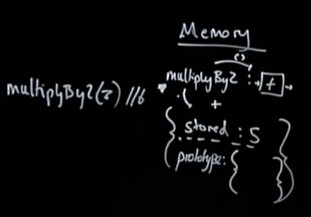 Memory
()
multiplyBy2 : → [+] →
multiplyBy2(2) //6
+
{ stored : 5
prototype: { }
}